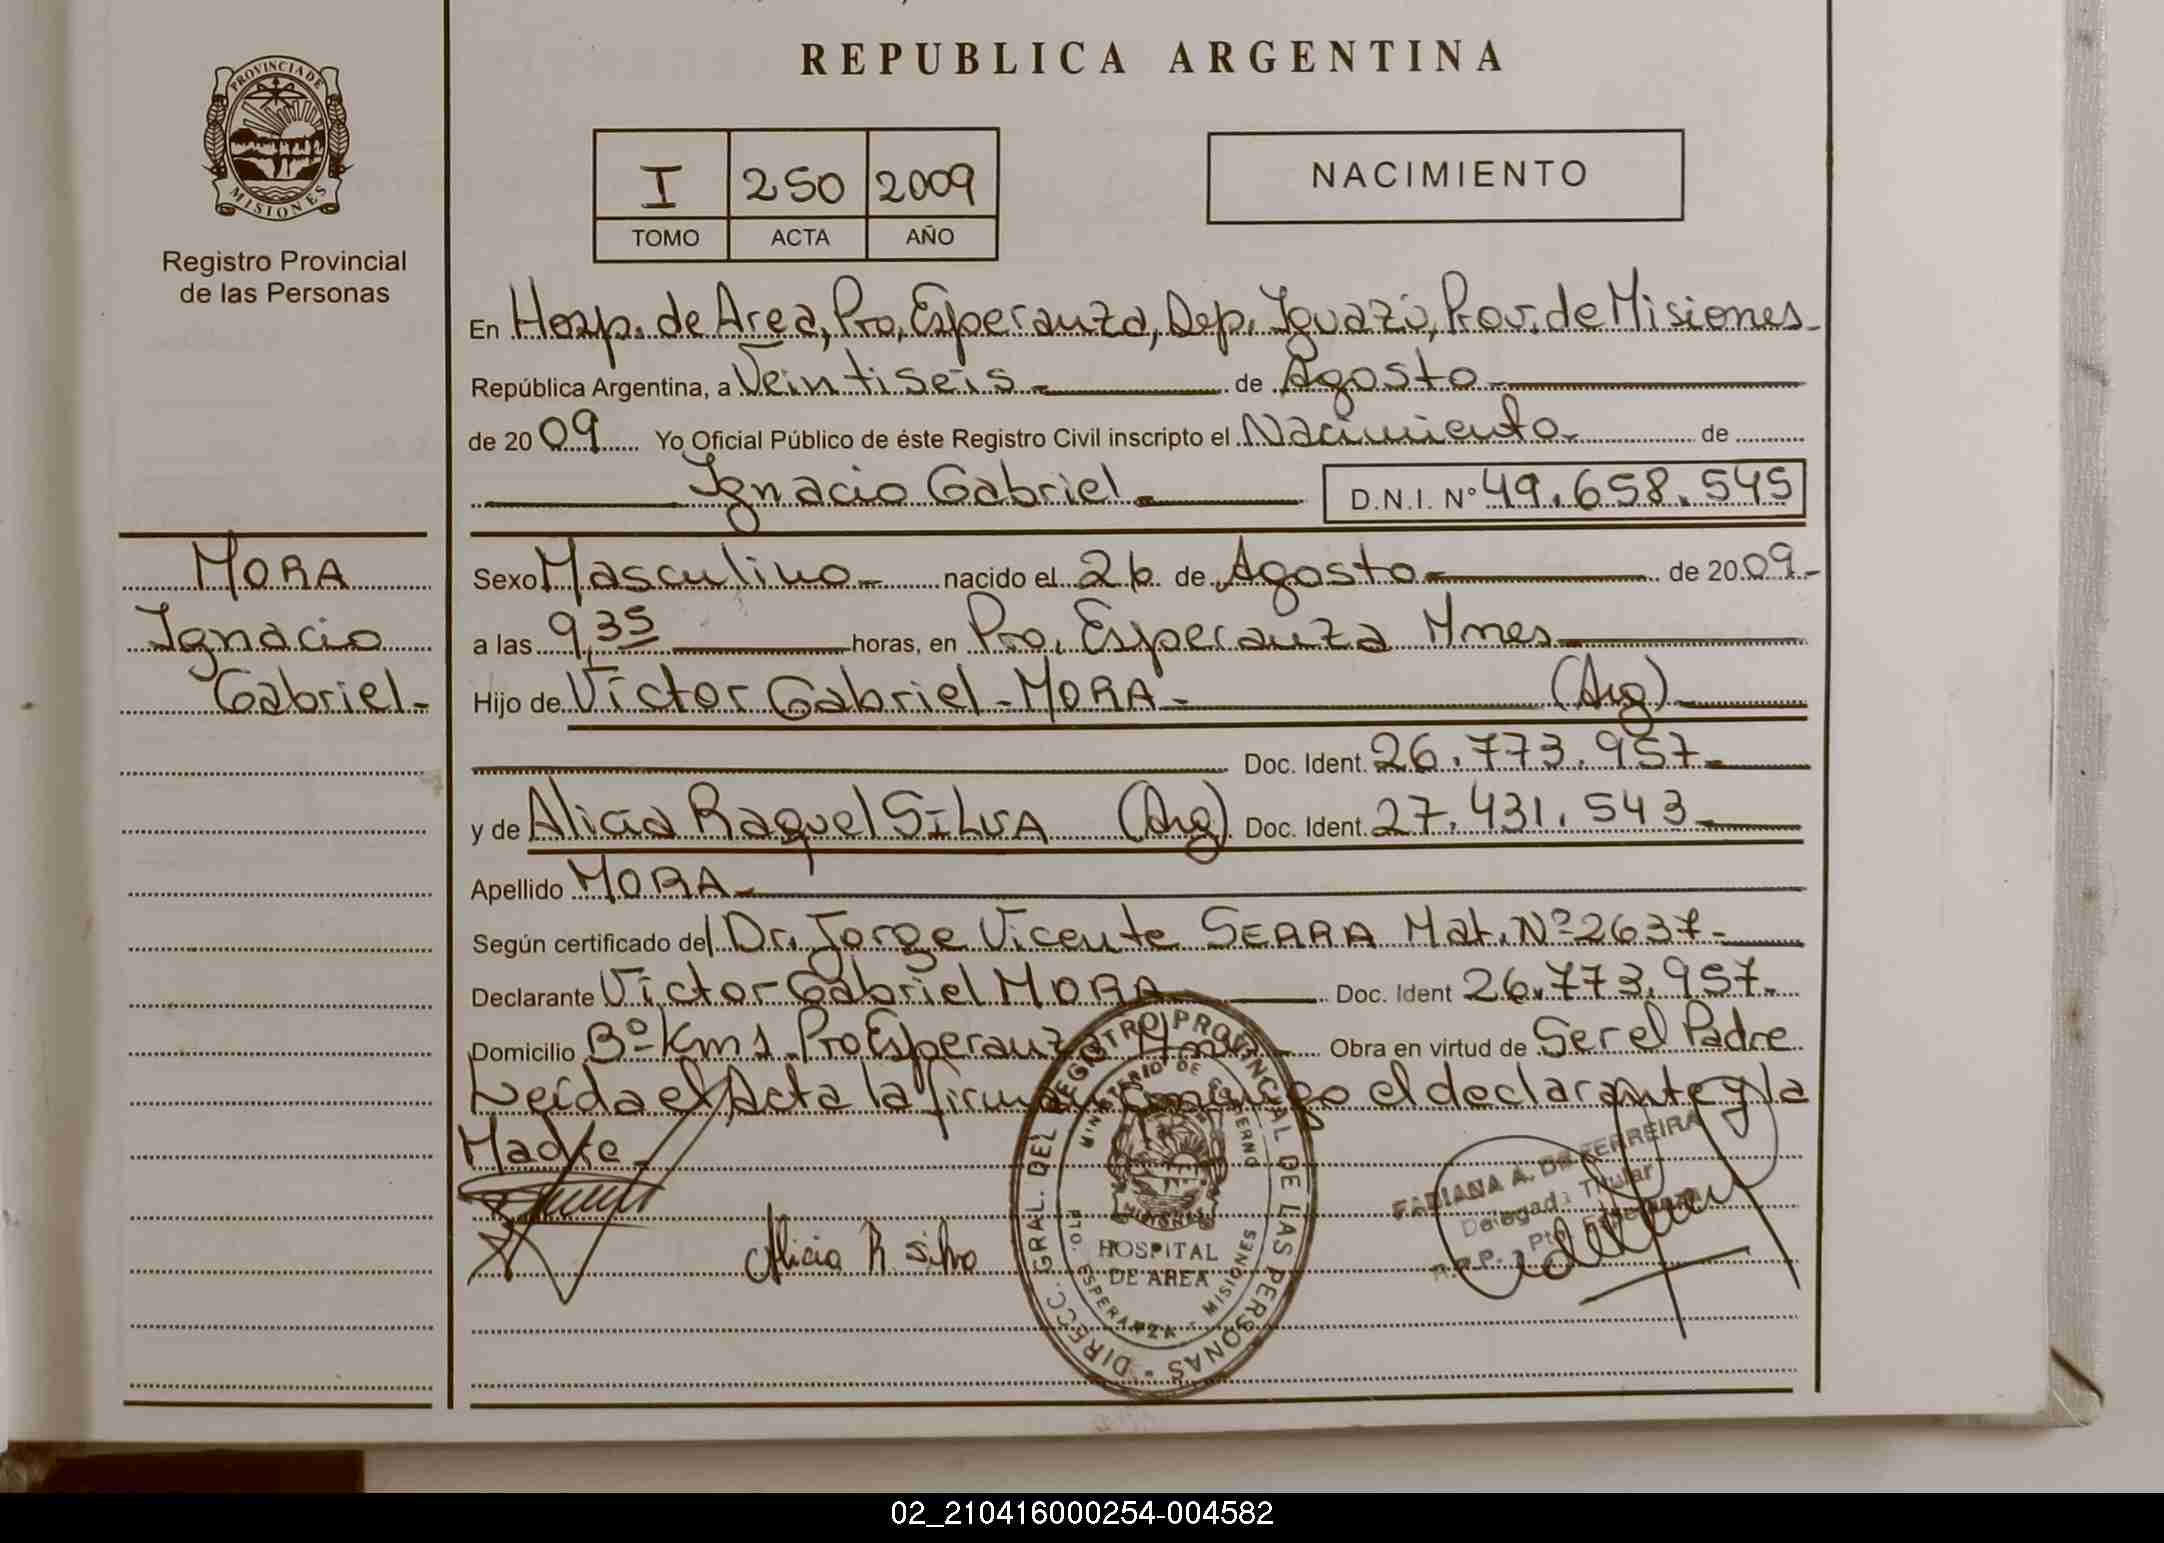 REPUBLICA ARGENTINA
PROVINCIA DE
MISIONES
Registro Provincial
de las Personas
I 250 2009
TOMO ACTA AÑO
NACIMIENTO
En Hosp. de Area, Pto, Esperanza, Dep. Iguazú, Prov. de Misiones-
República Argentina, a Veintiseis- de Agosto-
de 2009 Yo Oficial Público de éste Registro Civil inscripto el Nacimiento- de
Ignacio Gabriel- D.N.I. N° 49.658.545
MORA
Ignacio
Gabriel-
Sexo Masculino- nacido el 26 de Agosto- de 2009-
a las 9,35 horas, en Pto, Esperanza Mnes-
Hijo de Víctor Gabriel-MORA- (Arg)-
Doc. Ident. 26.773.957-
y de Alicia Raquel SILVA (Arg) Doc. Ident. 27.431.543-
Apellido MORA-
Según certificado del Dr. Jorge Vicente SERRA Mat. Nº 2637-
Declarante Víctor Gabriel MORA Doc. Ident 26.773.957-
Domicilio Bº Km 1 Pto Esperanza Mnes- Obra en virtud de Ser el Padre
Leída el Acta la firman conmigo el declarante y la
Madre-
Alicia R silva
DIRECC. GRAL. DEL REGISTRO PROVINCIAL DE LAS PERSONAS
MINISTERIO DE GOBIERNO
MISIONES
HOSPITAL
DE AREA
PTO. ESPERANZA - MISIONES
FABIANA A. DE FERREIRA
Delegada Titular
R.P.P. Pto. Esperanza
02_210416000254-004582